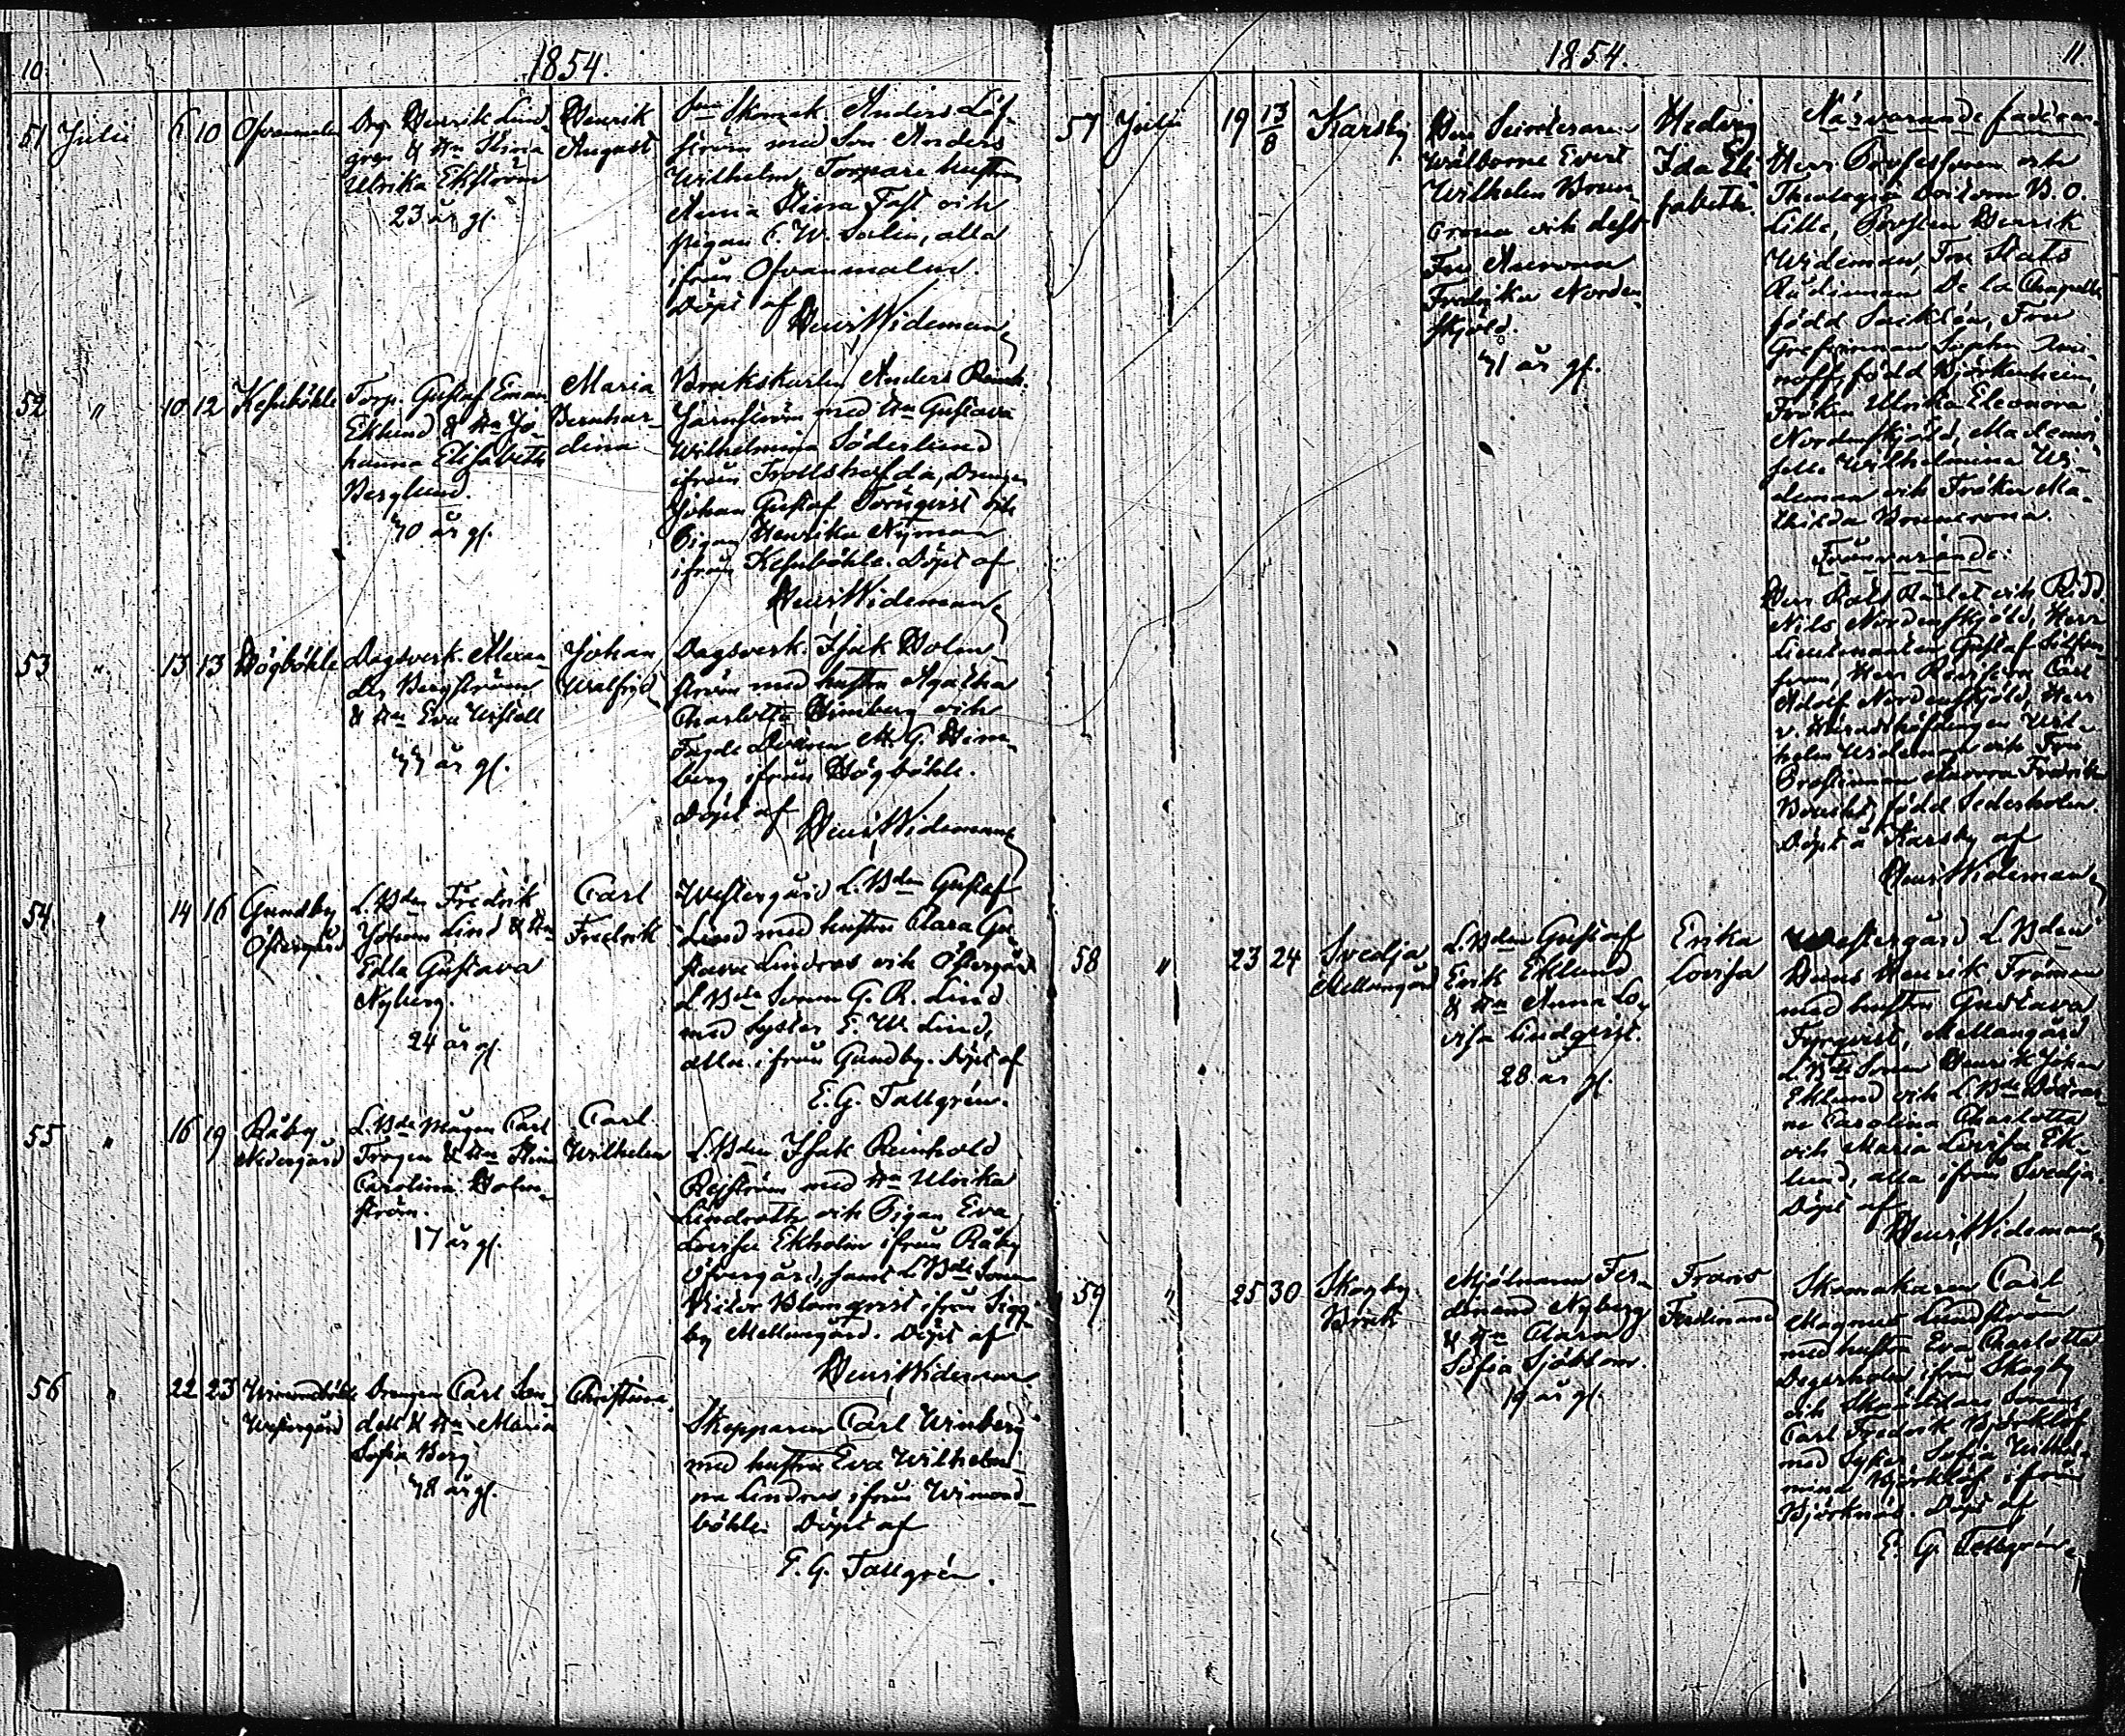 10.
1854.
51 Julii 6 10 Ofvanmalm
Drg. Henrik Lund-
gren & Hu Stina
Ulrika Ekström
23 år gl.
Henrik
August
Skomak. Anders Löf-
ström med Son Anders
Wilhelm, Torpare hustrun
Anna Stina Fast och
pigan C. W. Salin, alla
ifrån Ofvanmalm.
Döpt af
Henr Wideman
52 " 10 12 Kesnböhle
Torp. Gustaf Eman
Eklund & Hu Jo-
hanna Elisabeth
Berglund.
40 år gl.
Maria
Bernhar-
dina
Brukskarlen Anders Reinh.
Järnström med Hu Gustava
Wilhelmina Söderlund
ifrån Trollshofda, Drengen
Johan Gustaf Törnqvist och
Pigan Henrika Nyman
ifrån Kesnböhle. Döpt af
Henr Wideman
53 " 13 13 Högböhle
Dagsverk. Alexan-
der Bergström
& Hu Eva Wistell
44 år gl.
Johan
Walfrid
Dagsverk. Isak Holm-
ström med hustru Agatha
Charlotta Himberg och
M. G. Him-
berg ifrån Högböhle.
Döpt af
Henr Wideman
54 " 14 16 Gundby
Östergård
L.Bden Fredrik
Johan Lind & Hu
Edla Gustava
Nyberg.
24 år gl.
Carl
Fredrik
Westergård L.Bden Gustaf
Lind med hustru Clara Gu-
stava Lindros och Östergård
L.Bde Sonen G. R. Lind
med Syster E. W. Lind,
alla ifrån Gundby. Döpt af
E. G. Tallgrén.
55 " 16 19 Råby
Nedergård
L.Bde Mågen Carl
Trogen & Hu Stina
Carolina Holm-
ström.
17 år gl.
Carl
Wilhelm
L.Bden Isak Reinhold
Rejström med Hu Ulrika
Lindroth och Pigan Eva
Lovisa Ekholm ifrån Råby
Öfvergård, samt L.Bde Sonen
Victor Blomqvist ifrån Sigg-
by Mellangård. Döpt af
Henr Wideman
56 " 22 23
Westergård
Drengen Carl San-
dell & Hu Maria
Sofia Berg
48 år gl.
Christina
Skepparen Carl Winberg
med hustru Eva Wilhelmi-
na Lindros ifrån Wimond-
böhle. Döpt af
E. G. Tallgrén.
1854.
11
57 Julii 19 13/8 Karsby
Herr
Wälborne Evert
Wilhelm Brun-
crona och dess
Fru Aurora
Fredrika Norden-
skjöld.
41 år gl.
Hedvig
Ida Eli-
sabeth.
Närvarande faddrar
Herr Professoren och
Theologiæ Doctorn B. O.
Lille, Prosten Henrik
Wideman, Fru Stats
Rådinnan De la Chapelle
född Sacklén, Fru
Grefvinnan Sophie
född Björkenheim,
Fröken Ulrika Eleonora
Nordenskjöld, Mademoi-
selle Wilhelmina Wi-
deman och Fröken Ma-
thilda Bruncrona.
Frånvarande:
Herr Stats Rådet och Ridd.
Nils Nordenskjöld, Herr
Lieutenanten Gustaf
Herr Revisorn Carl
Adolf Nordenskjöld, Herr
v. Häradshöfdingen Wil-
helm Wideman och Fru
Prostinnan Aurora Fredrika
född Sederholm
Döpt å Karsby af
Henr Wideman
58 " 23 24 Svedja
Mellangård
L.Bden Gustaf
Erik Eklund
& Hu Anna Lo-
visa Lindqvist.
28 år gl.
Erika
Lovisa
Westergård L.Bden
Hans Henrik Fröman
med hustru Gustava
Mellangård
L.Bde Sonen Henrik Johan
Eklund och L.Bde Döttrar-
ne Carolina Charlotta
och Maria Lovisa Ek-
lund, alla ifrån Svedja
Döpt af
Henr Wideman
59 " 25 30 Skogby
Bruk
Mjölnaren Fer-
dinand Nyberg
& Hu Clara
Sofia Sjöblom.
19 år gl.
Frans
Ferdinand
Skomakaren Carl
Magnus Lundström
med hustru Eva Charlotta
Degerholm ifrån Skogby
och Sonen
Carl Fredrik Björklöf
med Syster Sofia Wilhel-
mina Björklöf ifrån
Björknäs. Döpt af
E. G. Tallgrén